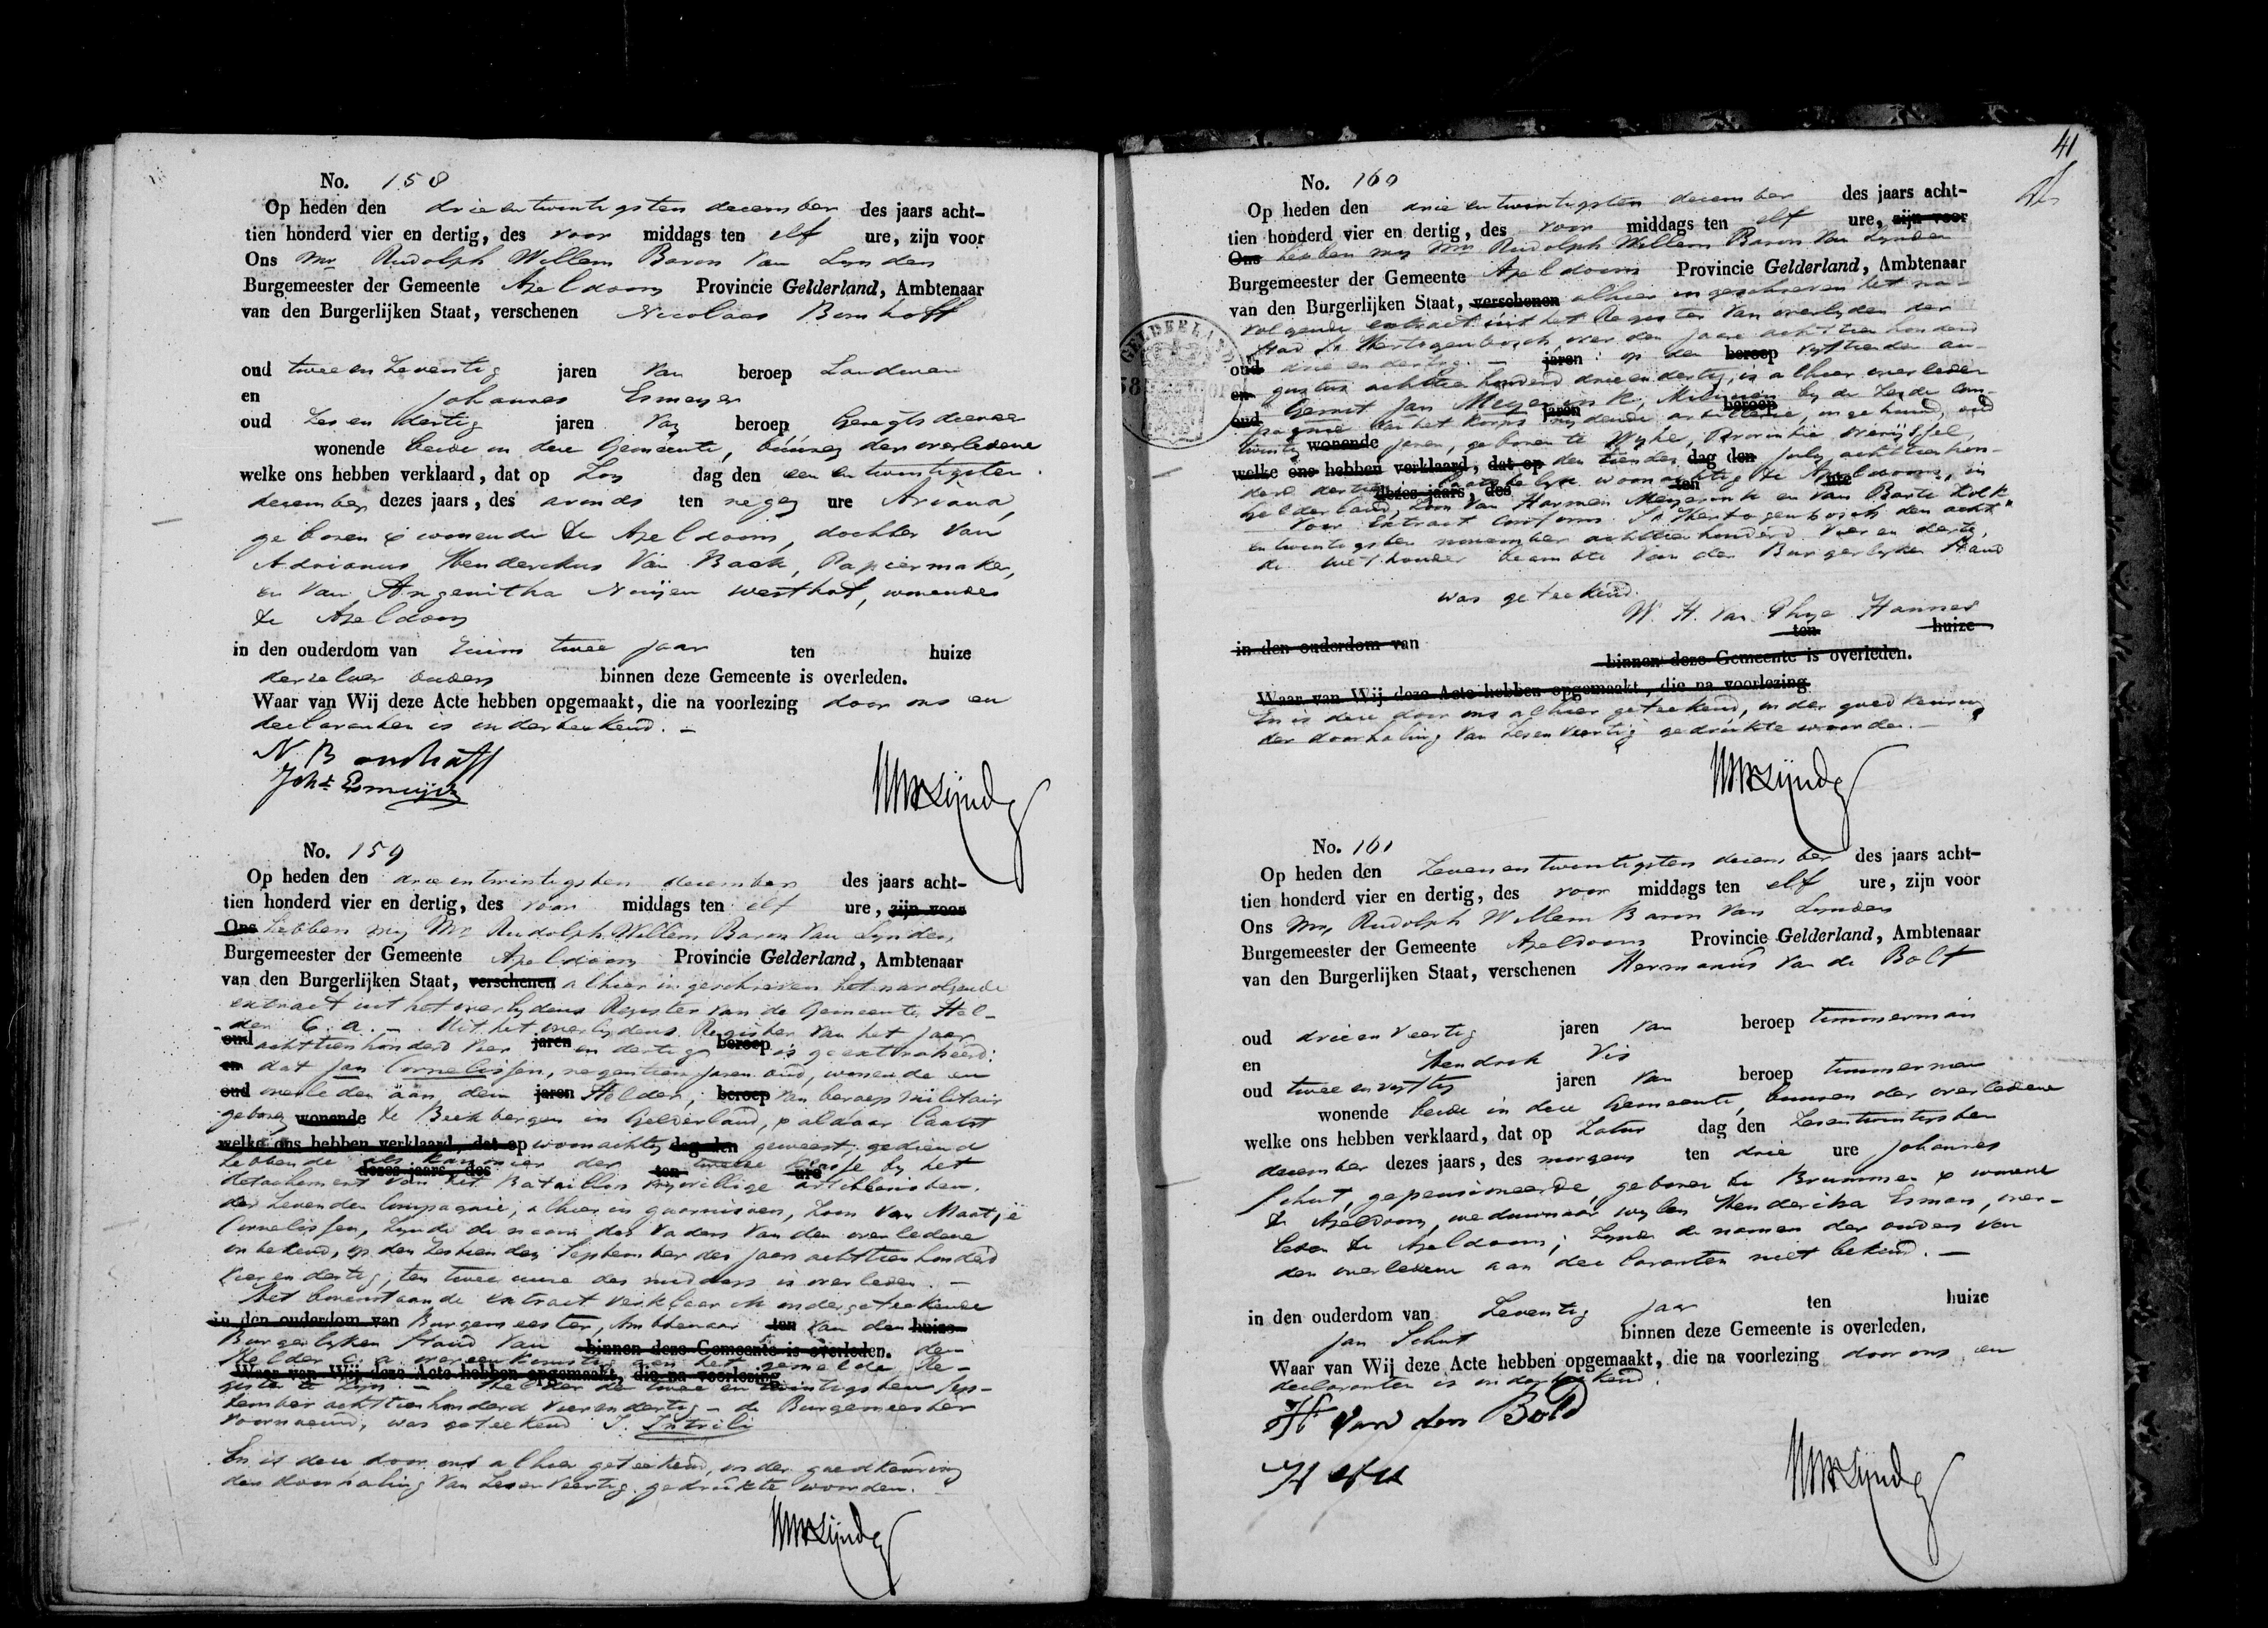 No. 158
Op heden den drie en twintigsten december des jaars acht-
tien honderd vier en dertig, des voor middags ten elf ure, zijn voor
Ons Mr Rudolph Willem Baron Van Lynden
Burgemeester der Gemeente Apeldoorn Provincie Gelderland, Ambtenaar
van den Burgerlijken Staat, verschenen Nicolaas
oud twee en Zeventig jaren Van beroep Landman
en Johannes Esmeyer
oud Zes en dertig jaren Van beroep Geregtsdienaar
wonende beide in deze Gemeente, buuren der overledene
welke ons hebben verklaard, dat op Zon dag den een en twintigsten
december dezes jaars, des avonds ten negen ure Ariana,
geboren & wonende te Apeldoorn, dochter van
Adrianus Henderekus Van Baak, Papiermaker,
en van Angenitha westhof, wonende
te Apeldoorn
in den ouderdom van Ruim twee jaar ten huize
derzelver ouders binnen deze Gemeente is overleden.
Waar van Wij deze Acte hebben opgemaakt, die na voorlezing door ons en
declaranten is onderteekend. —
N B
Johs Esmeijer
No. 159
Op heden den drie en twintigsten december des jaars acht-
tien honderd vier en dertig, des voor middags ten elf ure, zijn voor
Ons hebben wij Mr Rudolph Willem Baron Van Lynden,
Burgemeester der Gemeente Apeldoorn Provincie Gelderland, Ambtenaar
van den Burgerlijken Staat, verschenen alhier ingeschreven het navolgende
extract uit het overlydens Register van de Gemeente Hel-
der C. a. — Uit het overlydens Register van het jaar
oud achttienhonderd vier jaren en dertig beroep is geextraheerd:
en dat Jan Cornelissen, negentien jaren oud, wonende en
oud overleden aan den jaren Helder, beroep van beroep militair
geboren wonende te Beekbergen in Gelderland, & aldaar laatst
welke ons hebben verklaard, dat op woonachtig dag den geweest, gediend
hebbende als kanonier der tweede klasse by het
dezes jaars, des ten ure
detachement van het Bataillon vrywillige artilleristen.
der Zevende Compagnie, alhier in guarnisoen, Zoon van Maatje
Cornelissen, Zynde de naam des Vaders van den overledene
onbekend, op den Zestienden September des jaars achttienhonderd
vier en dertig, ten twee uure des middags is overleden. —
Het bovenstaande extract verklaar ik ondergeteekende
in den ouderdom van Burgemeester, Ambtenaar ten van den huize
Burgerlyken Stand van binnen deze Gemeente is overleden. de
Helder C. a. overeenkomstig aan het gemelde Re-
Waar van Wij deze Acte hebben opgemaakt, die na voorlezing
gister te Zyn. — Helder de twee en twintigsten Sep-
tember achttienhonderd vierendertig — de Burgemeester
voornoemd, was geteekend J.
En is deze door ons alhier geteekend, onder goedkeuring
der doorhaling van Zes en Veertig gedrukte woorden.
41
No. 160
Op heden den drie en twintigsten december des jaars acht-
tien honderd vier en dertig, des voor middags ten elf ure, zijn voor
Ons hebben wij Mr Rudolph Willem Baron Van Lynden
Burgemeester der Gemeente Apeldoorn Provincie Gelderland, Ambtenaar
van den Burgerlijken Staat, verschenen alhier ingeschreven het na-
volgende extract uit het Register van overlyden der
Stad 's Hertogenbosch, over den jaare achttien honderd
oud drie en dertig. — jaren op den beroep vyftienden au-
en gustus achttien honderd drie en dertig, is alhier overleden
oud Gerrit Jan Meyerink, Milicien by de Zesde Com-
pagnie van het Korps rydende artillerie, ongehuwd, oud
jaren beroep
twintig wonende jaren, geboren te Wyhe, Provintie Overijssel,
welke ons hebben verklaard, dat op den tienden dag den July achttienhon-
derd dertien, laatstelyk woonachtig te Apeldoorn, in
dezes jaars, des ten ure
Gelderland, Zoon van Harmen Meyerink en van Barte Kolk
Voor Extract Conform. 's Hertogenbosch den acht
en twintigsten november achttienhonderd vier en dertig,
de wethouder beambte van der Burgerlyken Stand
was geteekend.
W. H. van Hanned
in den ouderdom van ten huize
binnen deze Gemeente is overleden.
Waar van Wij deze Acte hebben opgemaakt, die na voorlezing
En is deze door ons alhier geteekend, onder goedkeuring
der doorhaling van Zes en Veertig gedrukte woorden. —
No. 161
Op heden den Zeven en twintigsten december des jaars acht-
tien honderd vier en dertig, des voor middags ten elf ure, zijn voor
Ons Mr. Rudolph Willem Baron Van Lynden
Burgemeester der Gemeente Apeldoorn Provincie Gelderland, Ambtenaar
van den Burgerlijken Staat, verschenen Hermanus van de Bolt
oud drie en veertig jaren van beroep timmerman
en Hendrik Vis
oud twee en vyftig jaren Van beroep timmerman
wonende beide in deze Gemeente, buuren der overledene
welke ons hebben verklaard, dat op Zatur dag den Zesentwintigsten
december dezes jaars, des morgens ten drie ure Johannes
Schut, gepensioneerde, geboren te Brummen & wonende
te Apeldoorn, weduwnaar wylen Henderika Esmen, over-
leden te Apeldoorn; Zynde de namen der ouders van
den overledene aan declaranten niet bekend. —
in den ouderdom van Zeventig jaar ten huize
Jan Schut binnen deze Gemeente is overleden.
Waar van Wij deze Acte hebben opgemaakt, die na voorlezing door ons en
declaranten is onderteekend.
H van den Bold